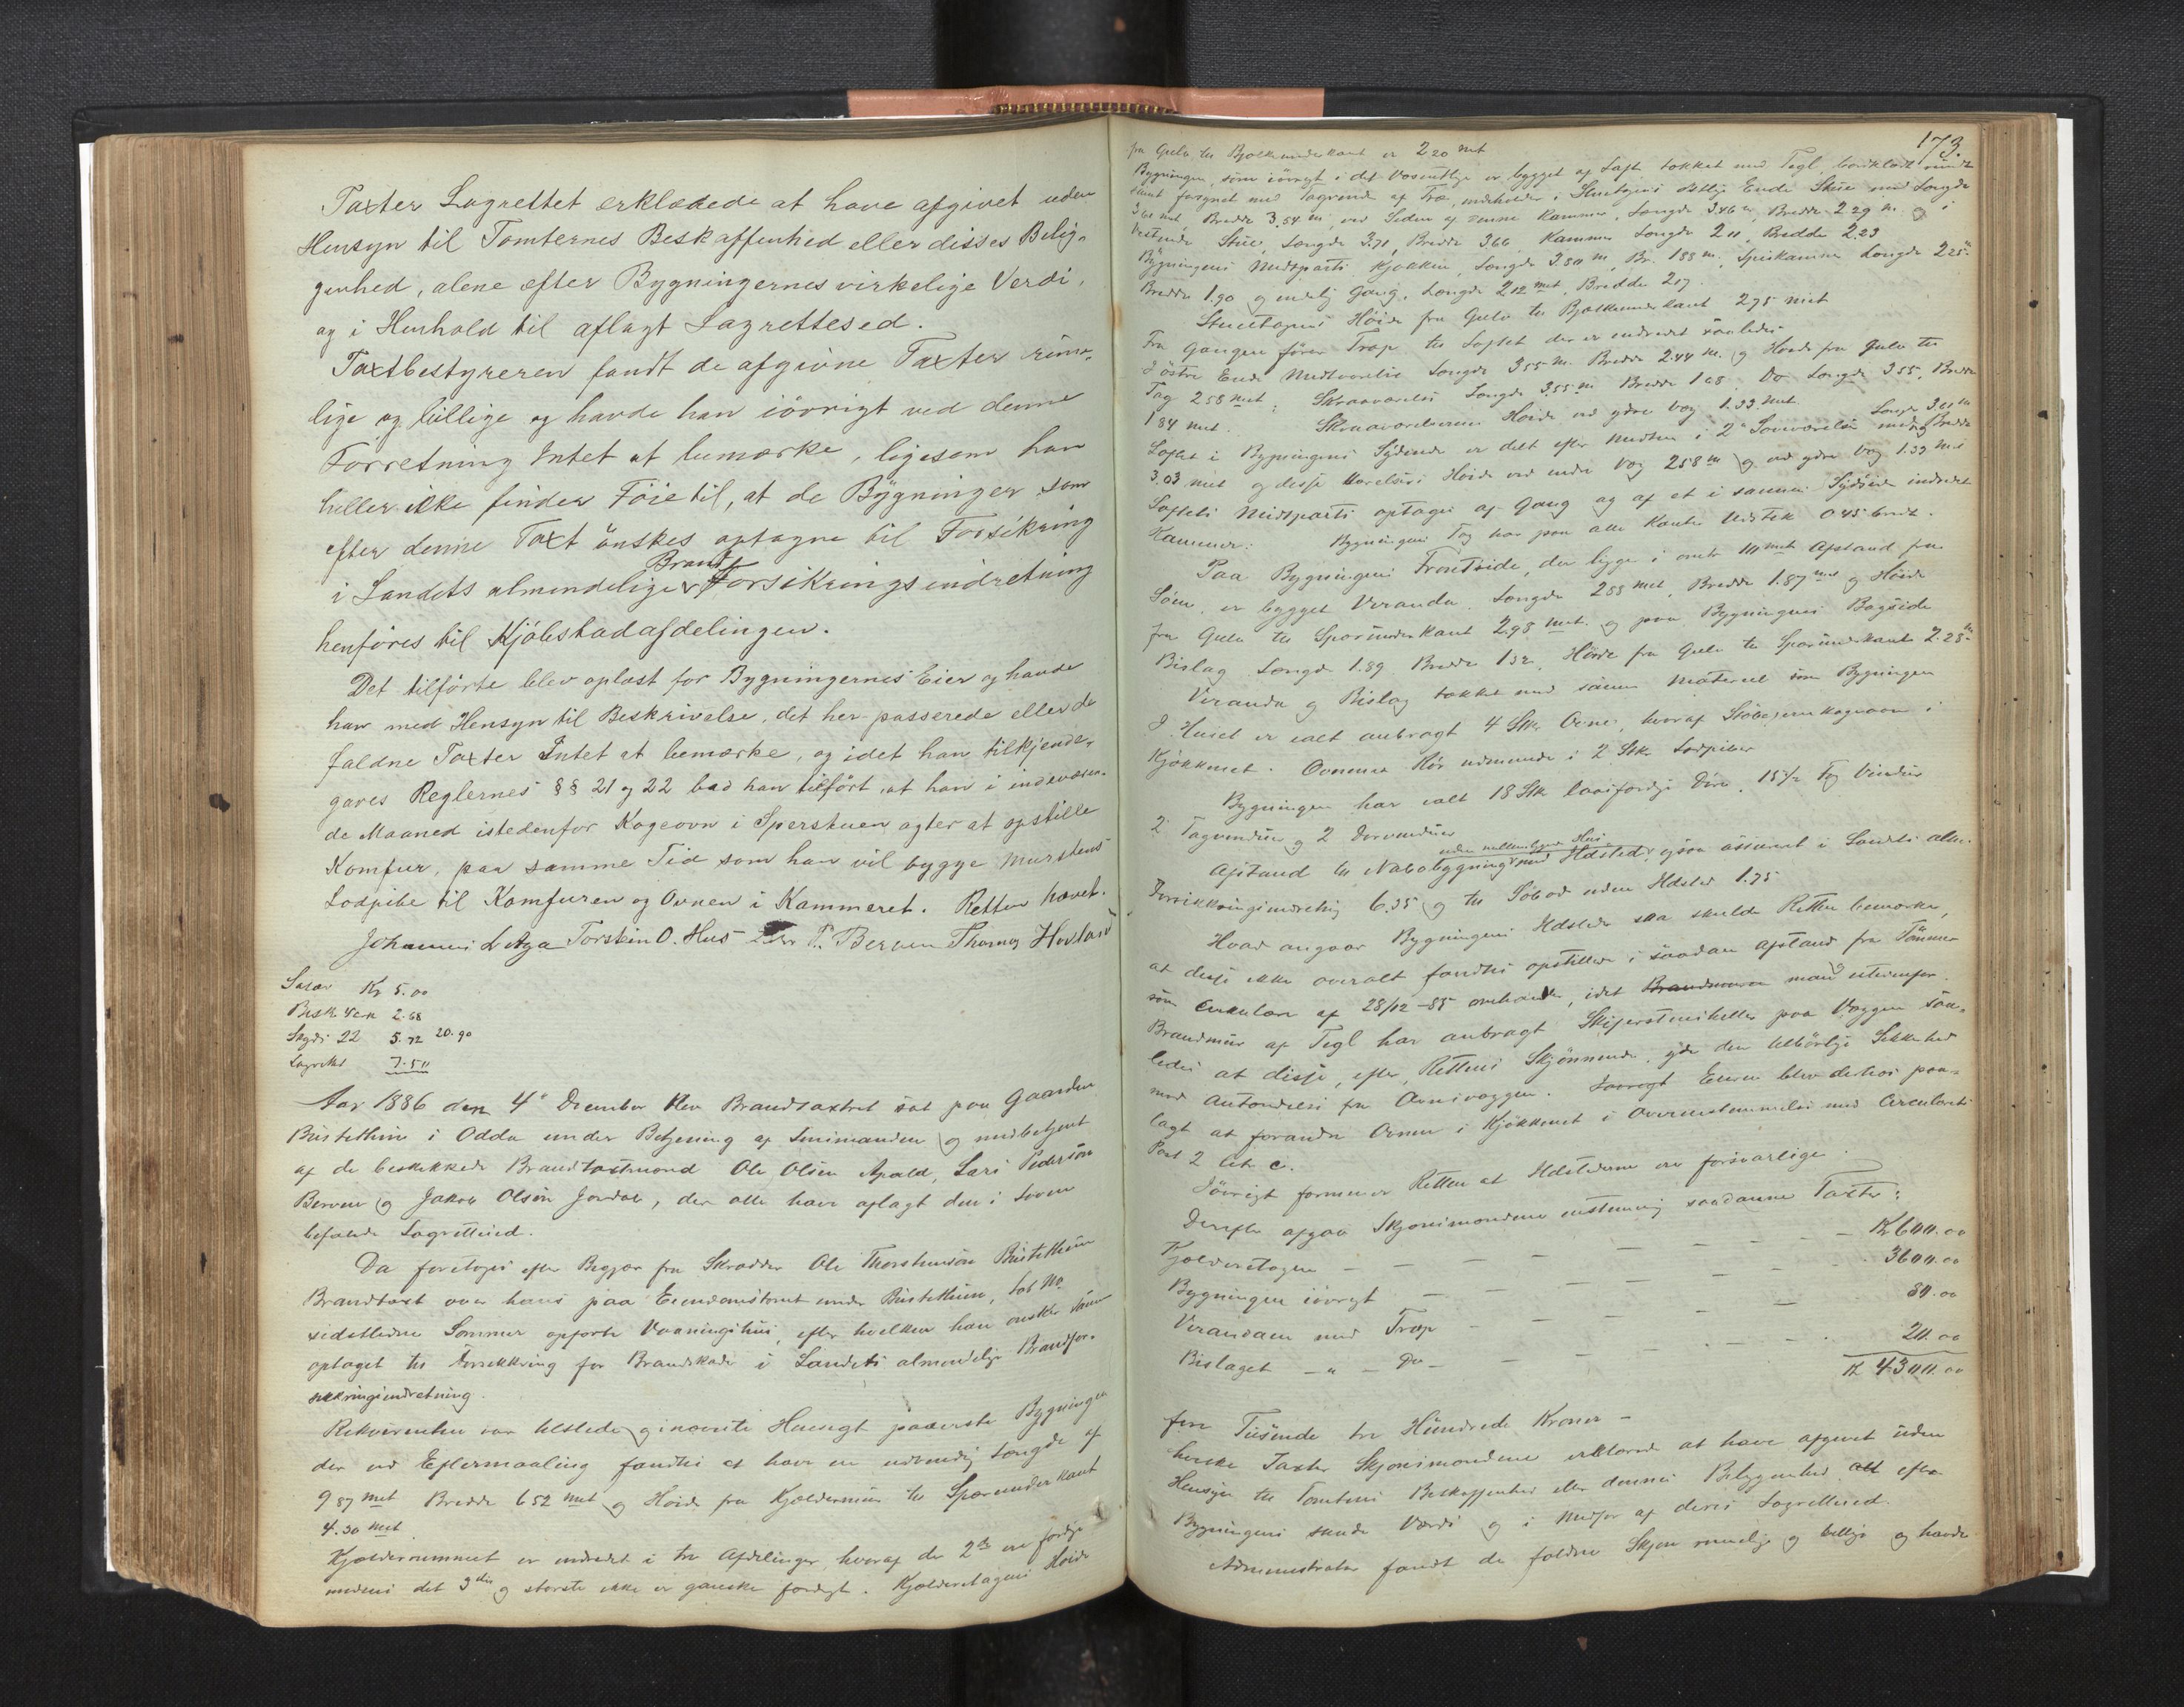 Taxter Lagrettet erklærede at have afgivet uden
Hensyn til Tomternes Beskaffenhed eller disses Belig-
genhed, alene efter Bygningernes virkelige Verdi,
og i Henhold til aflagt Lagrettesed.
Taxtbestyreren fandt de afgivne Taxter rime-
lige og billige og havde han iövrigt ved denne
Forretning Intet at bemærke, ligesom han
heller ikke finder Föie til, at de Bygninger som
efter denne Taxt önskes optagne til Forsikring
i Landets almindelige Brand Forsikringsindretning
henföres til Kjöbstadafdelingen.
Det tilförte blev oplæst for Bygningernes Eier og havde
han med Hensyn til Beskrivelse, det her passerede eller de
faldne Taxter Intet at bemærke, og idet han tilkjende-
gaves Reglernes §§ 21 og 22 bad han tilført, at han i indeværen-
de Maaned istedenfor Kogeovn i Sperstuen agter at opstille
Komfur, paa samme Tid som han vil bygge Murstens
Lodpibe til Komfuren og Ovnen i Kammeret. Retten hævet.
Johannes L Aga Torstein O. Hus P. Berven Thomas Hovland
Salær Kr 5.00
Besk 2.68
Skyds 22 5.72 20.90
Lagrettet 7.50
Aar 1886 den 4de December blev Brandtaxtret sat paa Gaarden
Bustethun i Odda under Betjening af Lensmanden og medbetjent
af de beskikkede Brandtaxtmænd Ole Olsen Apald, Lars Pedersön
Berven og Jakob Olsön Jordal, der alle have aflagt den i Loven
befalede Lagrettesed.
Da foretoges efter Begjær fra Skrædder Ole Thorstensön Bustethun
Brandtaxt over hans paa Eiendomstomt under Bustethun, Löb No
sidstledne Sommer opförte Vaaningshus, efter hvilken han önsker samme
optaget til Forsikkring for Brandskade i Landets almindelige Brandfor-
sikkringsindretning.
Rekvirenten var tilstede og i næviste Henseigt paaviste Bygningen
der ved Eftermaaling fandtes at have en udvendig Længde af
9 87 met Bredde 6 52 met og Höide fra Kjeldermur til Sperreunderkant
4.30 met
Kjælderrummet er indredet i tre Afdelinger, hvoraf de 2de ere færdige
medens det 3die og störste ikke er ganske færdigt. Kjælderetagens Höide
173.
fra Gulv til Bjelkeunderkant er 2 20 met
Bygningen, som iövrigt i det Væsentlige er bygget af Laft tækket med Tegl, bordklædt rundt
samt forsynet med Tagrende af Træ, indeholder i Stueetagens östlige Ende Stue med Længde
3 61 met Bredde 3.54 m, ved Siden af denne Kammer, Længde 3.46 m, Bredde 2.29 m og i
Vestende Stue, Længde 3.71, Bredde 3.66, Kammer Længde 2 11, Bredde 2.23
Bygningens Midtparti Kjökken, Længde 3.80 m, Br. 1 88 m, Spiskammer Længde 2 25 m
Bredde 1.90 og endelig Gang, Længde 2 12 met, Bredde 2 17.
Stueetagens Höide fra Gulv til Bjelkeunderkant 2 75 met
Fra Gangen förer Trap til Loftet der er indredet saaledes:
I östre Ende Midtværelse Længde 3 55 m. Bredde 2.44 m. og Höide fra Gulv til
Tag 2 58 met; Skraaværelse Længde 3.55 m Bredde 1 68. Do Længde 3 55, Bredde
1 84 met. Skraaværelsernes Höide ved ydre Væg 1.33 met.
Loftet i Bygningens Sydende er delt efter Midten i 2de Soveværelser med Længde 3.61 m og Bredde
3.03 met og disse Værelsers Höide ved indre Væg 2 58 m og ved ydre Væg 1.33 met
Loftets Midtparti optages af Gang og af et i sammes Sydside indredet
Kammer. Bygningens Tag har paa alle Kanter Udstik 0 45 bredt.
Paa Bygningens Frontside, der ligge i omtr 10 met Afstand fra
Söen, er bygget Veranda. Længde 2 88 met, Bredde 1.87 met og Höide
fra Gulv til Sperreunderkant 2.98 met. og paa Bygningens Bagside
Bislag Længde 1.89 Bredde 1 32, Höide fra Gulv til Sperreunderkant 2.28 m
Veranda og Bislag tækket med samme Materiel som Bygningen
I Huset er ialt anbragt 4 Stk. Ovne, hvoraf Stöbejernskogeovn i
Kjökkenet. Ovnenes Rör udmunde i 2 Stk Lodpiber
Bygningen har ialt 18 Stk laasfærdige Döre, 15 1/2 Fag Vinduer
2 Tagvinduer og 2 Dörvinduer
uden mellemliggende Hus
Afstand til Nabobygning med Ildsted, ogsaa assureret i Landets alm.
Forsikkringsindretning 6.35 og til Söbod uden Ildsted 1.75
Hvad angaar Bygningens Ildsteder saa skulde Retten bemærke,
at disse ikke overalt fandtes opstillede i saadan Afstand fra Tömmer
som Cirkulære af 28/12-85 omhandler, idet Brandmuren man istedenfor
Brandmur af Tegl har anbragt Skiferstensheller paa Væggen saa-
ledes at disse, efter Rettens Skjönnende, yde den tilbörlige Sikkerhed
mod Antændelse fra Ovnsvæggen. Iövrigt Eieren blev derhos paa-
lagt at forandre Ovnen i Kjökkenet i Overensstemmelse med Circulærets
Post 2 Litr. C.
Iövrigt formener Retten at Ildstederne ere forsvarlige.
Derefter afgav Skjönsmændene enstemmig saadanne Taxter:
Kjælderetagen - - - - - - - - Kr 600.00
Bygningen iövrigt - - - - - - 3600.00
Verandaen med Trap - - - - - 80.00
Bislaget - " - Do - - - - - - 20.00
Kr 4300.00
fire Tusinde tre Hundrede Kroner -
hvilke Taxter Skjönsmændene erklærede at have afgivet uden
Hensyn til Tomtens Beskaffenhed eller dennes Beliggenhed, alt efter
Bygningens sande Værdi og i Medför af deres Lagrettesed.
Administrator fandt de faldne Skjön rimelige og billige og havde